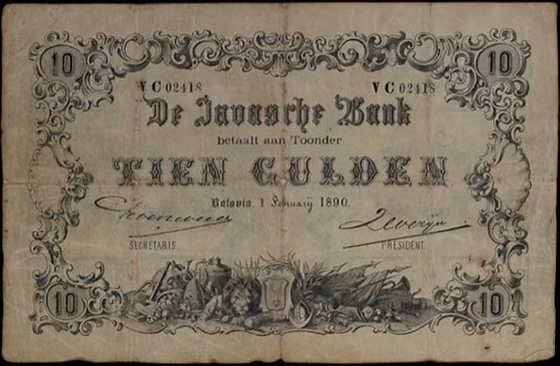 10 10
VC 02418 VC 02418
De Javasche Bank
betaalt aan Toonder
TIEN GULDEN
Batavia, 1 Februarij 1890.
SECRETARIS PRESIDENT
10 10